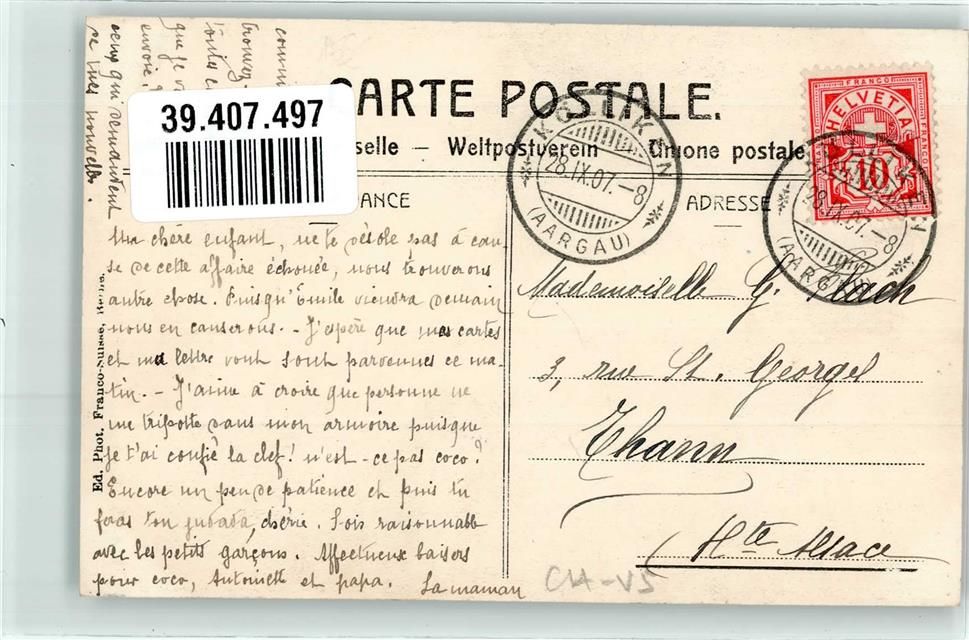 39.407.497
CARTE POSTALE.
selle – Weltpostverein – Unione postale
ANCE
ADRESSE
FRANCO
HELVETIA
10
KÖLLIKEN
28.IX.07.–8
(AARGAU)
28.IX.07.–8
(AARGAU)
Ma chère enfant, ne te désole pas à cau-
se de cette affaire échouée, nous trouverons
autre chose. Puisqu'Émile viendra demain
nous en causerons. - J'espère que mes cartes
et ma lettre vont sont parvenues ce ma-
tin. - J'aime à croire que personne ne
me tripote dans mon armoire puisque
je t'ai confié la clef! n'est-ce pas coco?
Encore un peu de patience et puis tu
feras ton, chérie. Sois raisonnable
avec les petits garçons. Affectueux baisers
pour coco, Antoinette et papa.
La maman
trouver
que je
envoie
ceux qui demandent
de mes nouvelles.
Mademoiselle G.
3, rue St. Georges
Thann
Hte Alsace
Ed. Phot. Franco-Suisse, Berne.
CH-V5